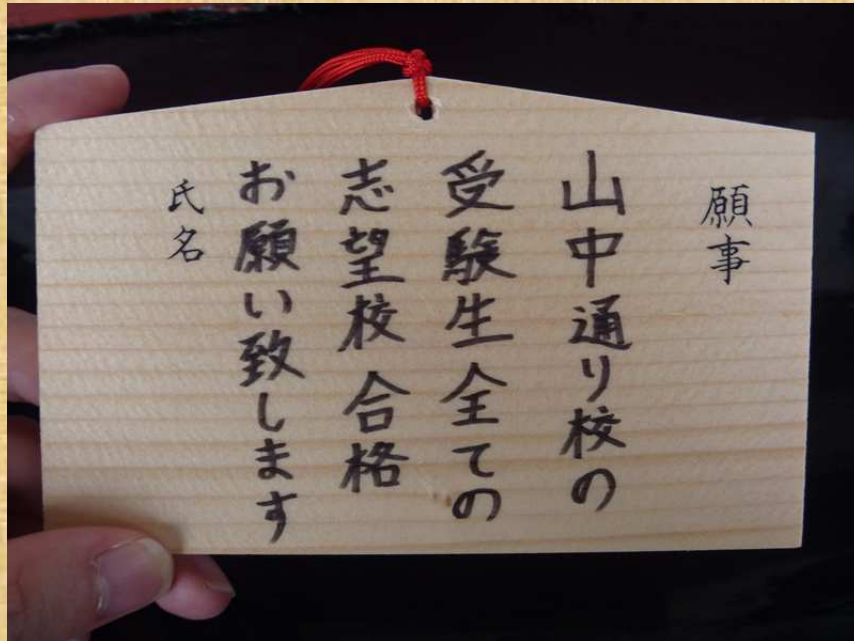 願事
山中通り校の
受験生全ての
志望校合格
お願い致します
氏名